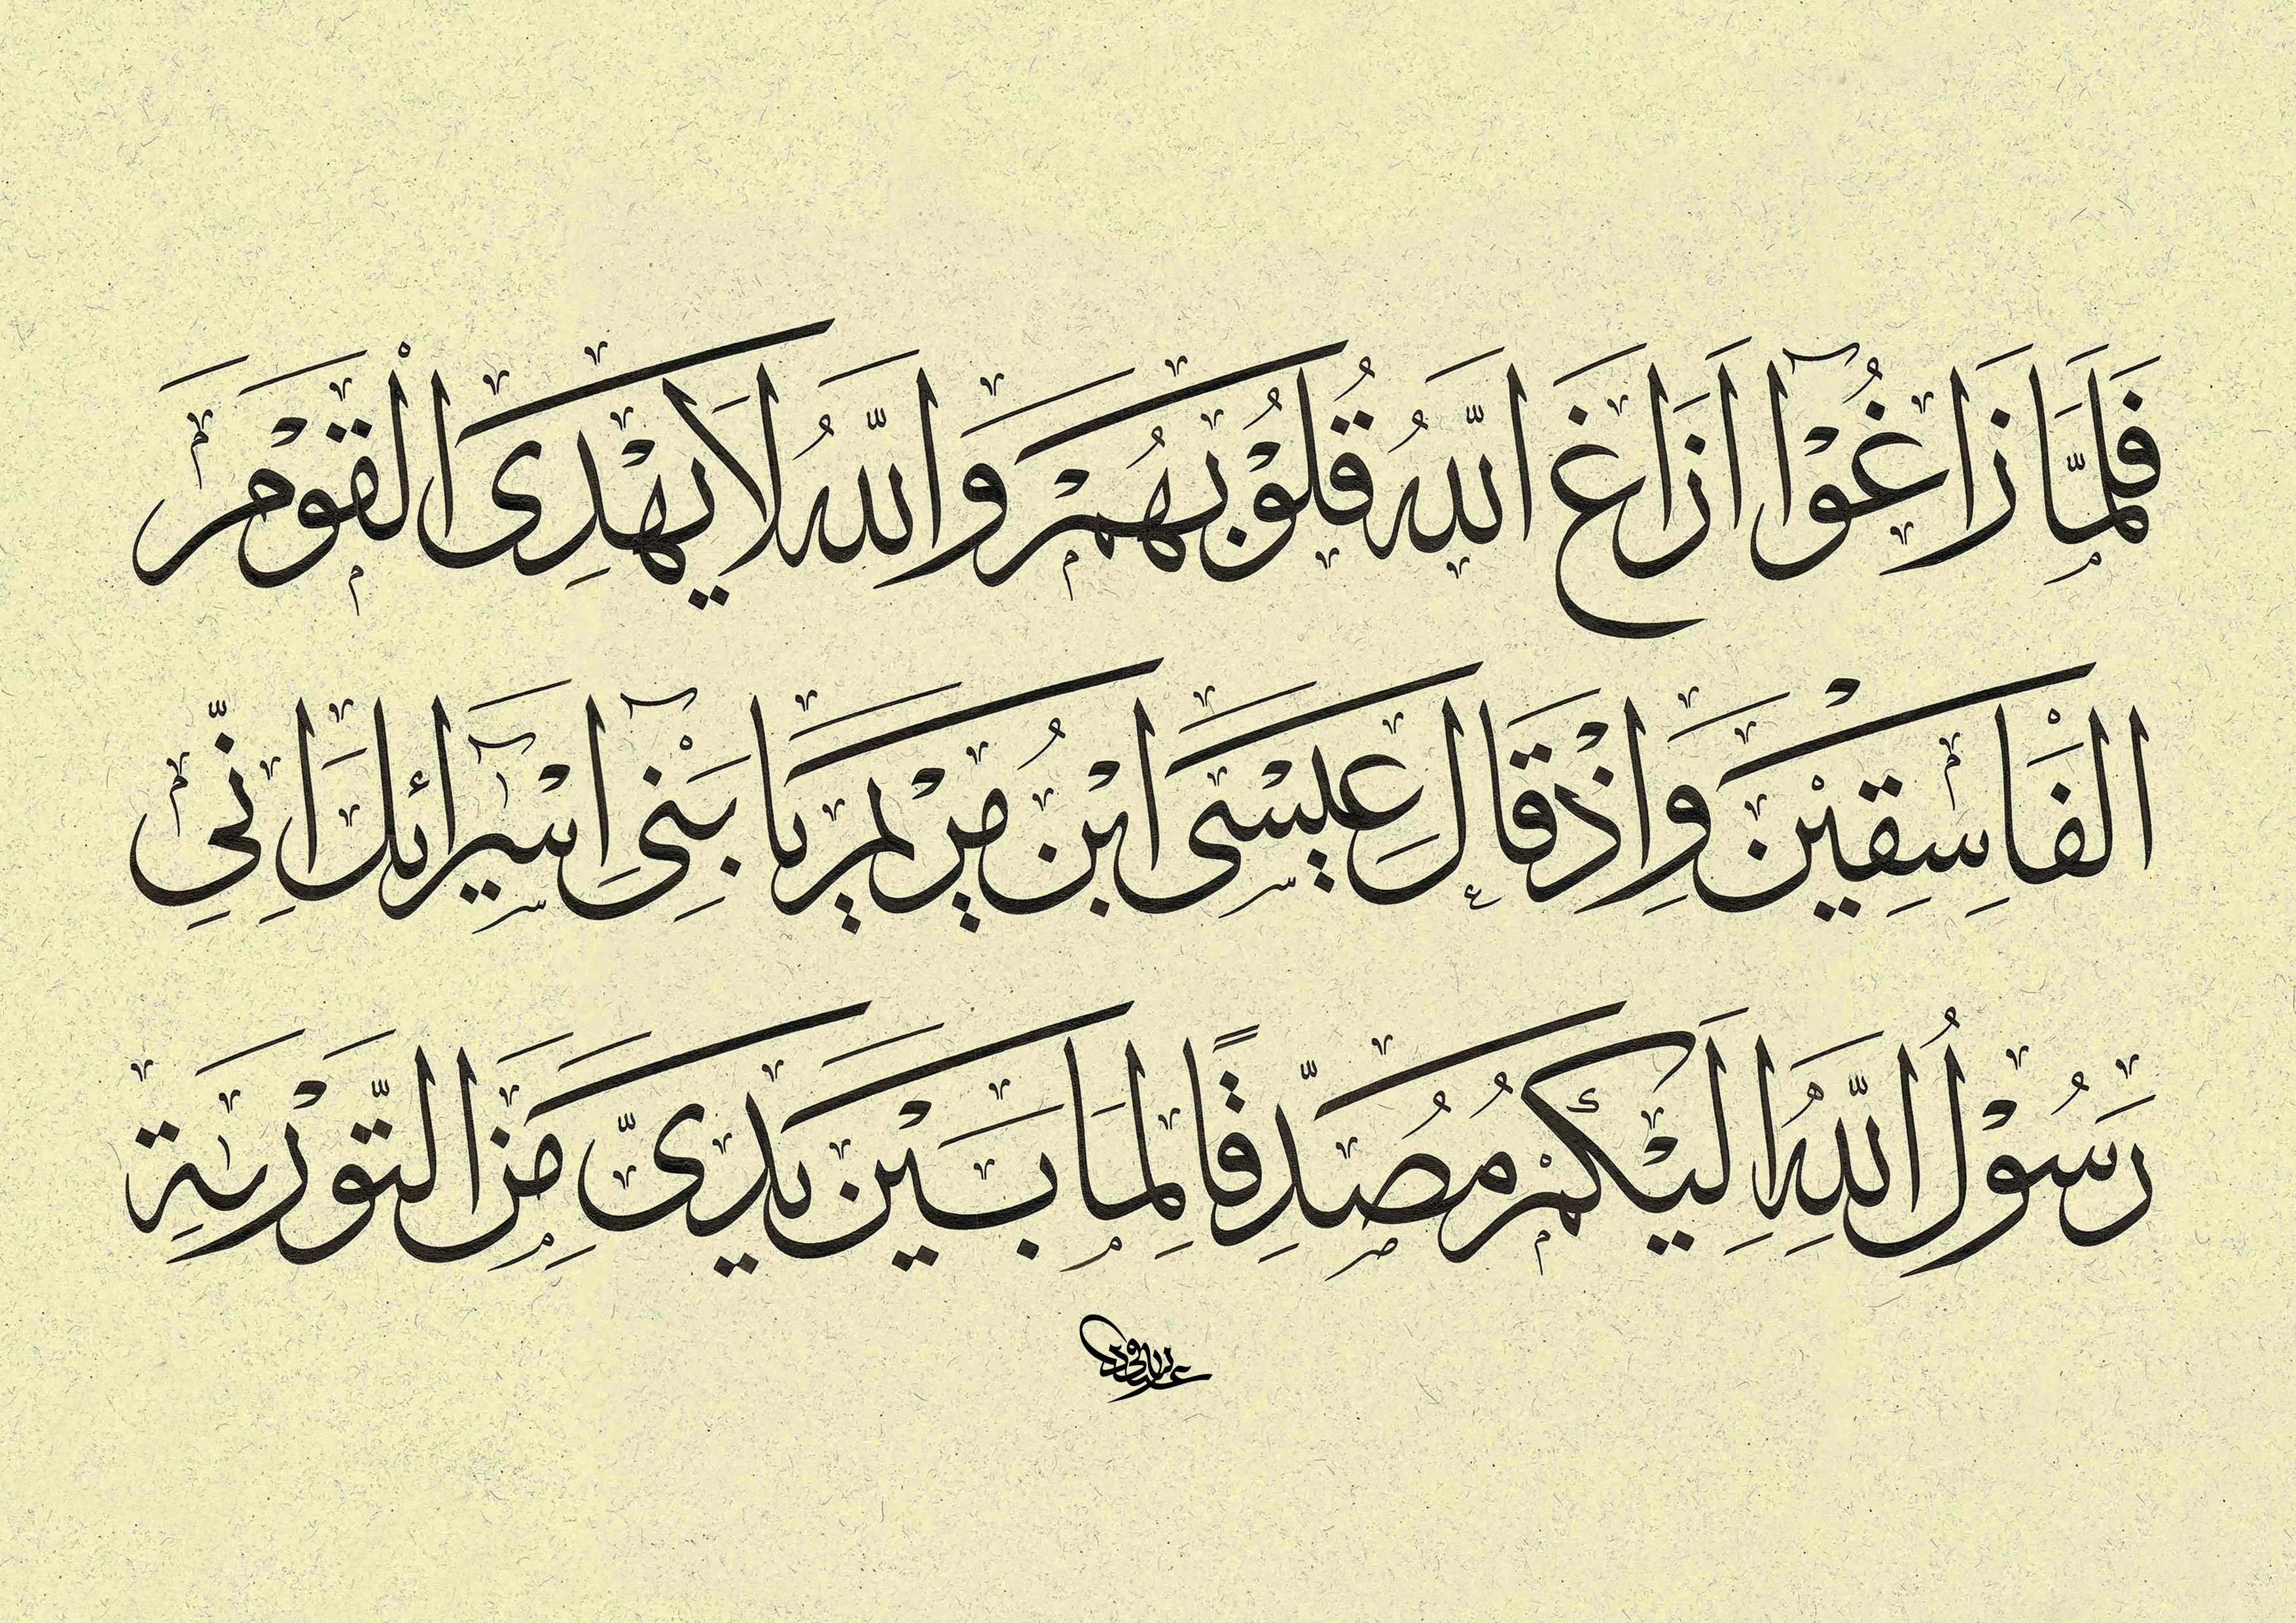 فَلَمَّا زَاغُوْٓا اَزَاغَ اللّٰهُ قُلُوْبَهُمْ وَاللّٰهُ لَا يَهْدِى الْقَوْمَ
الْفَاسِقِيْنَ وَاِذْ قَالَ عِيْسَى ابْنُ مَرْيَمَ يَا بَنِىْٓ اِسْرَٓائِلَ اِنِّى
رَسُوْلُ اللّٰهِ اِلَيْكُمْ مُصَدِّقًا لِمَا بَيْنَ يَدَىَّ مِنَ التَّوْرٰيةِ